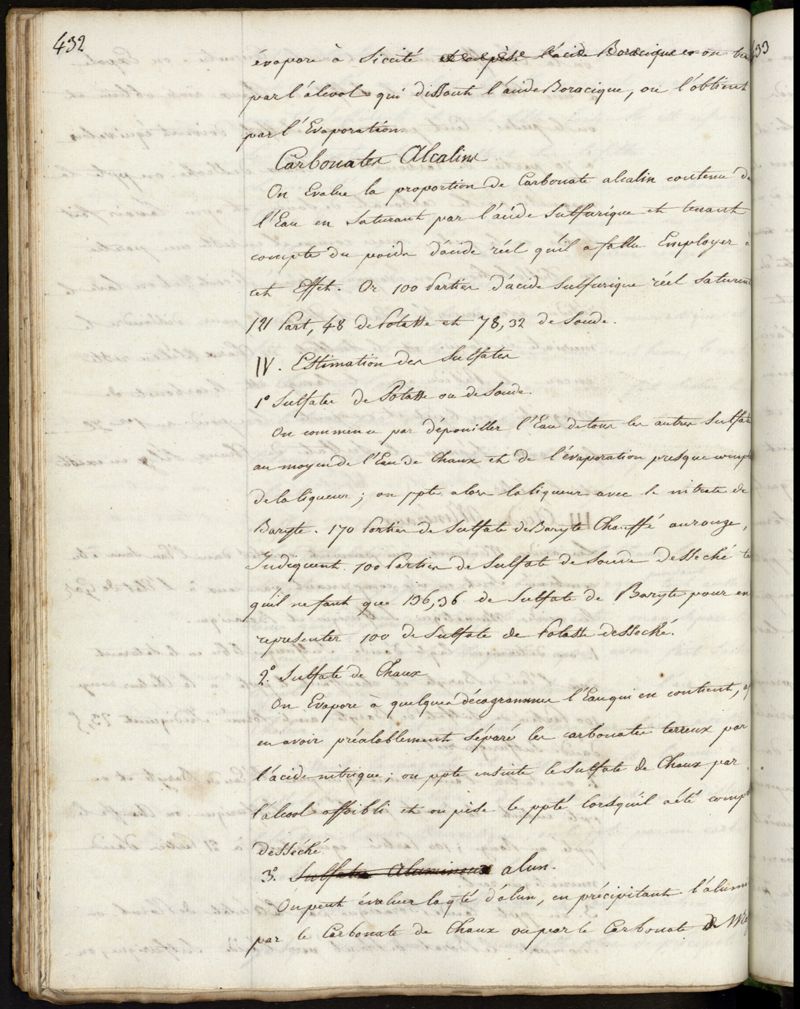 432
évapore à Siccité et on pèse l'acide Boracique on
par l'alcool qui dissout l'acide Boracique, on l'obtient
par l'Evaporation.
Carbonates Alcalins
On Evalue la proportion de Carbonate alcalin contenu de
l'Eau en Saturant par l'acide Sulfurique et tenant
compte du poids d'acide réel qu'il a fallu Employer
cet Effet. Or 100 Parties d'acide Sulfurique réel Saturent
121 Part, 48 de Potasse et 78,32 de Soude.
IV. Estimation des Sulfates
1° Sulfates de Potasse ou de Soude.
On commence par dépouiller l'Eau de tous les autres Sulfat
au moyen de l'Eau de Chaux et de l'évaporation presque comp
de la liqueur; on ppte alors la liqueur avec le nitrate de
Baryte. 170 Parties de Sulfate de Baryte Chauffé au rouge,
Indiquent 100 Parties de Sulfate de Soude desséché
qu'il ne faut que 136,36 de Sulfate de Baryte pour en
représenter 100 de Sulfate de Potasse desséché.
2° Sulfate de Chaux
On Evapore à quelques décagrammes l'Eau qui en contient,
en avoir préalablement séparé les carbonates terreux par
l'acide nitrique; on ppte ensuite le Sulfate de Chaux par
l'alcool affaibli et on pèse le ppté lorsqu'il a été comp
desséché
3° Sulfate Alumineux alun.
On peut évaluer la qté d'alun, en précipitant l'alumi
par le Carbonate de Chaux ou par le Carbonate de
33